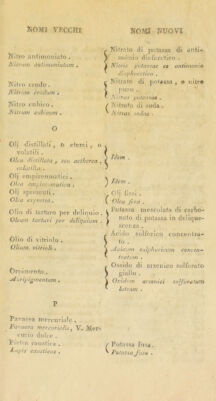 NOMI VECCHI
NOMI NUOVI
Nitro antimoniato.
Nitrum antimoniatum.
Nitrato di potassa di anti-
monio diaforetico.
Nitras potassae ex antimonio
diaphoretico.
Nitro crudo.
Nitrum crudum.
Nitrato di potassa, o nitro
puro.
Nitras potassae.
Nitro cubico.
Nitrum cubicum.
Nitrato di soda.
Nitras sodae.
O
Olj distillati, o eterei, o
volatili.
Olea distillata, seu aetherea,
volatilia.
Idem.
Olj empireumatici.
Olea empireumatica.
Idem.
Olj spremuti.
Olea expressa.
Olj fissi.
Olea fixa.
Olio di tartaro per deliquio.
Oleum tartari per deliquium.
Potassa mescolata di carbo-
nato di potassa in delique-
scenza.
Olio di vitriolo.
Oleum vitrioli.
Acido solforico concentra-
to.
Acidum sulphuricum concen-
tratum.
Orpimento.
Auripigmentum.
Ossido di arsenico solforato
giallo.
Oxidum arsenici sulfuratum
luteum.
P
Papavera mercuriale.
Panacea mercurialis, V. Mer-
curio dulce.
Pietra caustica.
Lapis causticus.
Potassa fusa.
Potassa fusa.